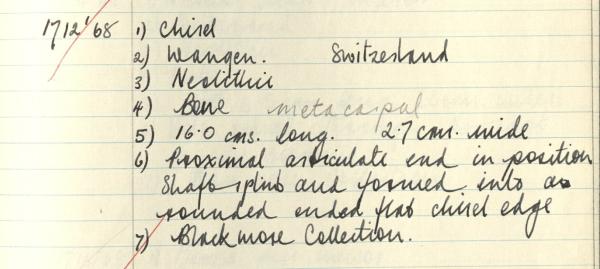 1712'68 1) Chisel
2) Wangen. Switzerland
3) Neolithic
4) Bone metacapul
5) 16.0 cms. long. 2.7 cms. wide
6) Proximal articulate end in position
Shaft split and formed into a
rounded ended flat chisel edge
7) Blackmore Collection.